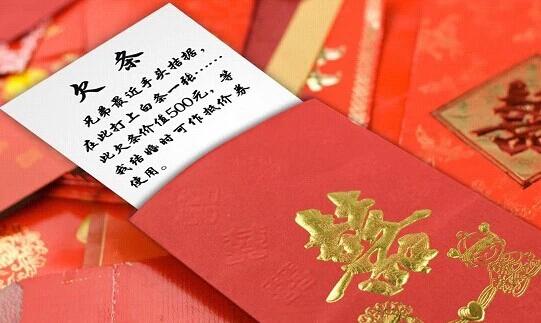 欠条
兄弟最近手头拮据，
在此打上白条一张……
此欠条价值500元，等
我结婚时可作抵价券
使用。
囍